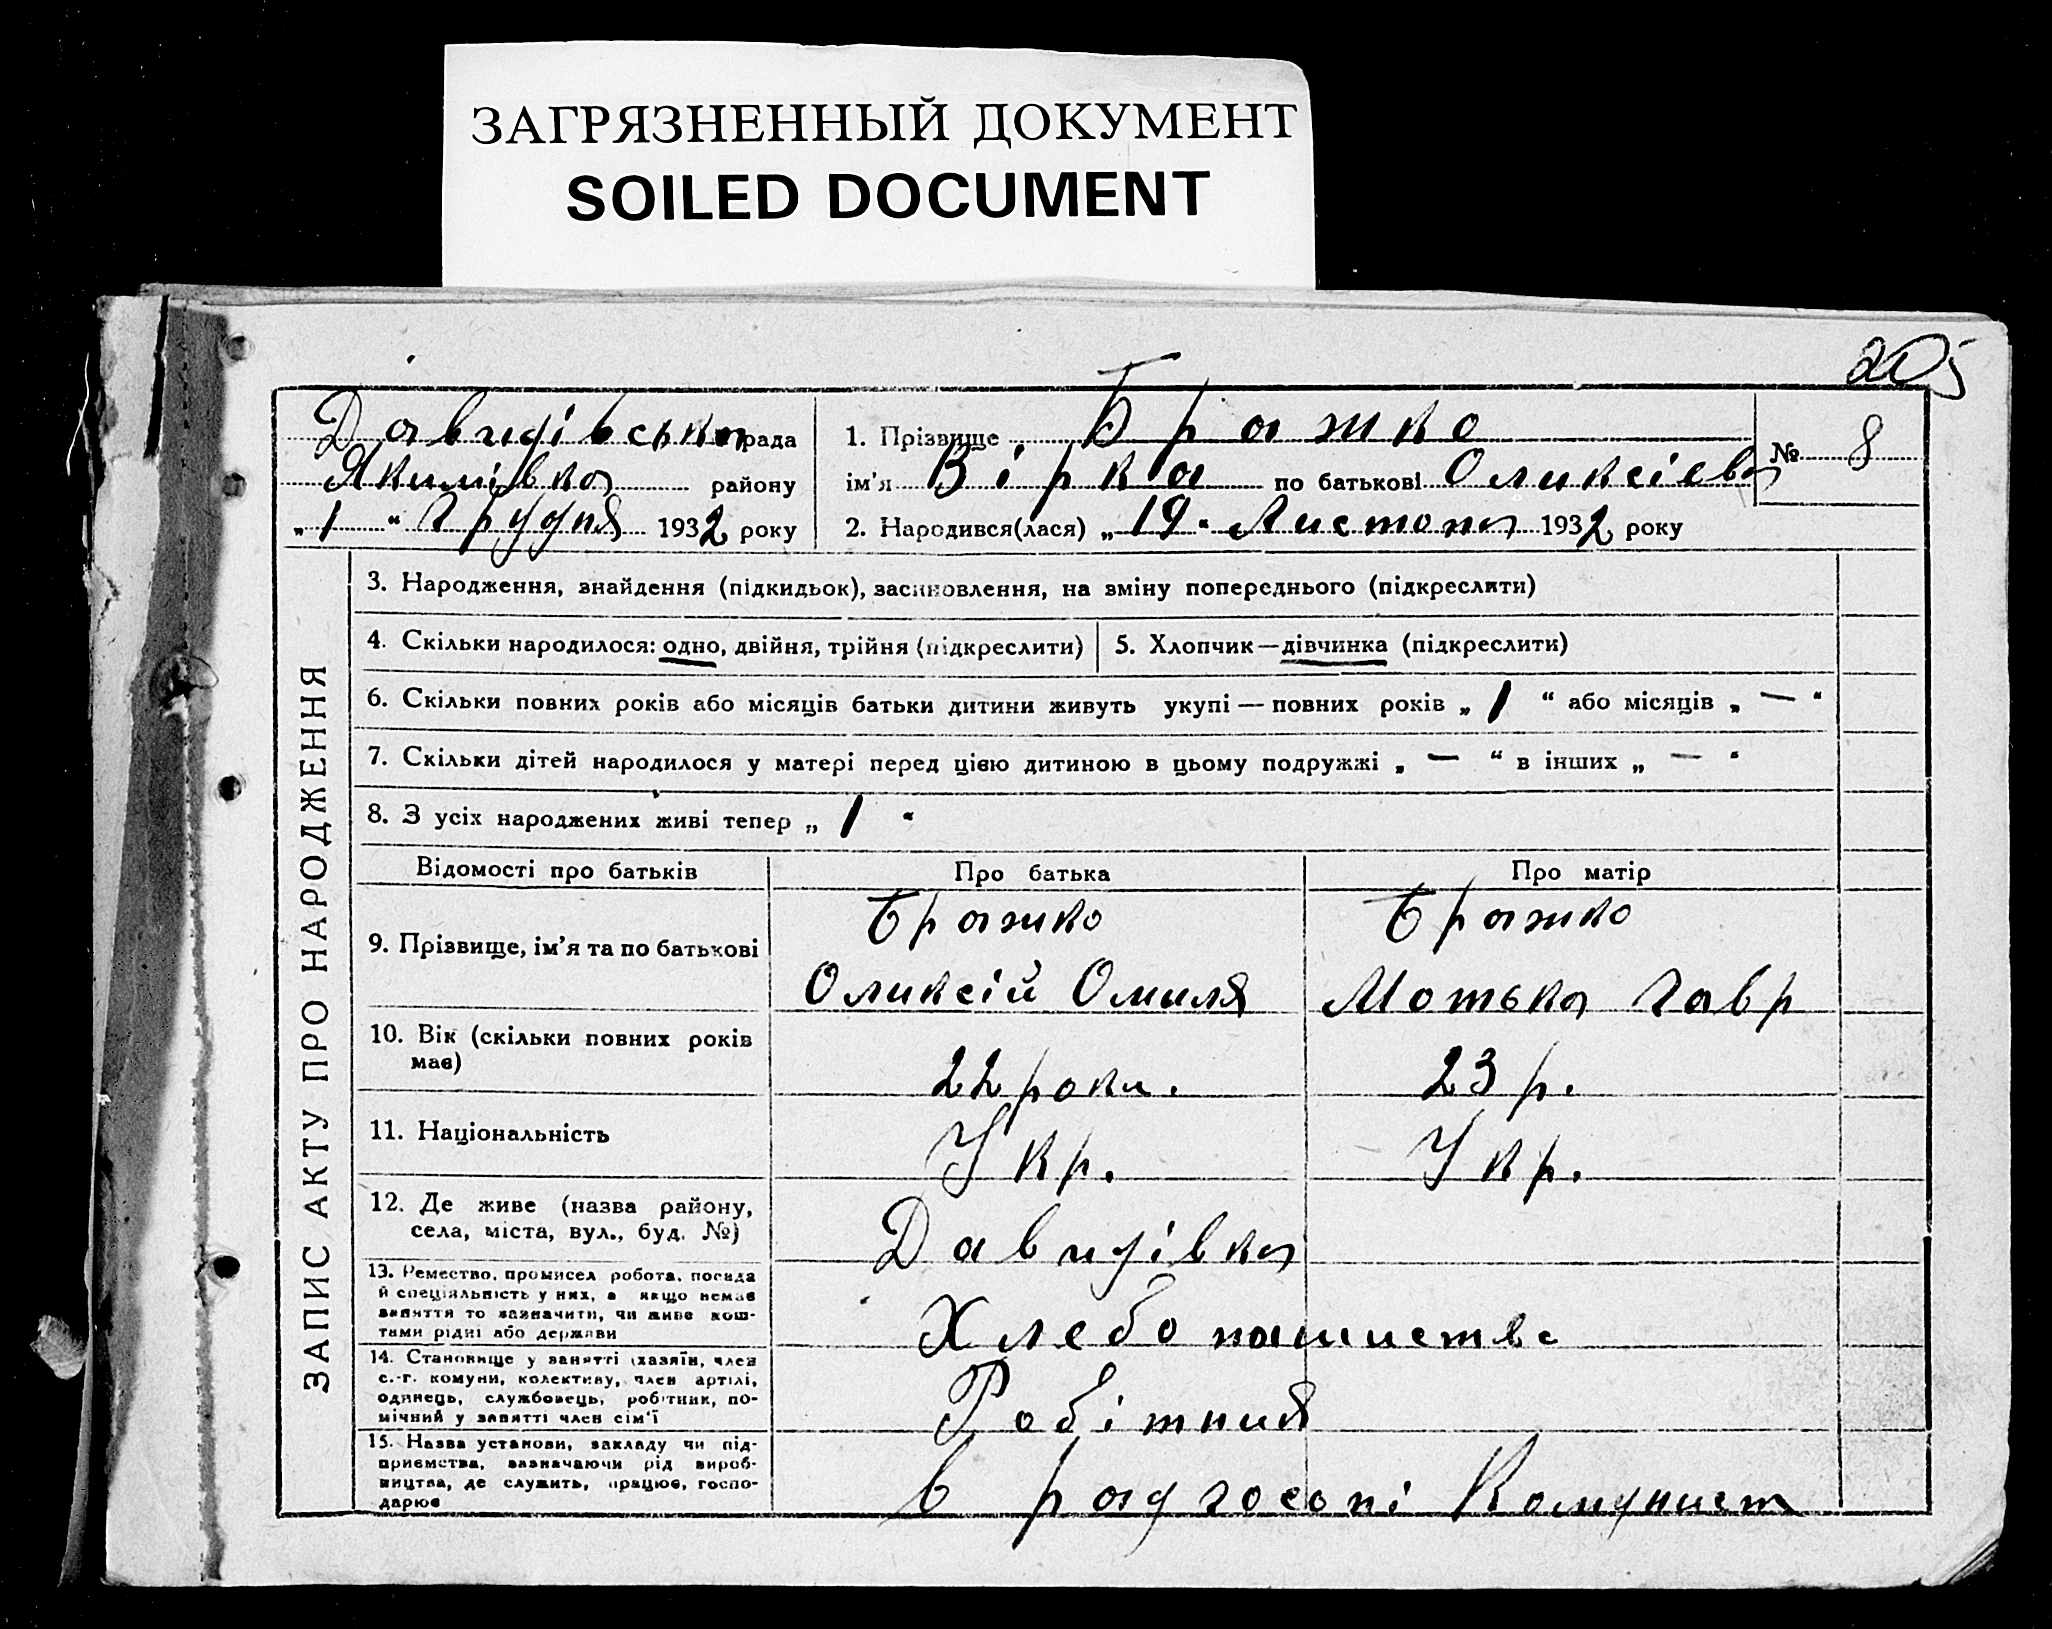 ЗАГРЯЗНЕННЫЙ ДОКУМЕНТ
SOILED DOCUMENT
205
Давидівська рада
Якимівка району
„ 1 " Грудня 1932 року
1. Прізвище Бражко
ім'я Вірка по батькові Оликсієва
№ 8
2. Народився(лася) „ 19 " Листопа 1932 року
ЗАПИС АКТУ ПРО НАРОДЖЕННЯ
3. Народження, знайдення (підкидьок), засиновлення, на зміну попереднього (підкреслити)
4. Скільки народилося: одно, двійня, трійня (підкреслити)
5. Хлопчик—дівчинка (підкреслити)
6. Скільки повних років або місяців батьки дитини живуть укупі — повних років „ 1 " або місяців „ — "
7. Скільки дітей народилося у матері перед цією дитиною в цьому подружжі „ — " в інших „ — "
8. З усіх народжених живі тепер „ 1 "
Відомості про батьків
Про батька
Про матір
9. Прізвище, ім'я та по батькові
Бражко
Оликсій Омиля
Бражко
Мотька Гавр
10. Вік (скільки повних років
має)
22 роки.
23 р.
11. Національність
Укр.
Укр.
12. Де живе (назва району,
села, міста, вул., буд. №)
Давидівка
13. Ремество, промисел робота, посада
й спеціяльність у них, а якщо немає
заняття то зазначити, чи живе кош-
тами рідні або держави
Хлебопашиство
14. Становище у занятті (хазяїн, член
с.-г. комуни, колективу, член артілі,
одинець, службовець, робітник, по-
мічний у занятті член сім'ї
Робітния
15. Назва установи, закладу чи під-
приємства, зазначаючи рід вироб-
ництва, де служить, працює, госпо-
дарює
в радгоспі Комунист